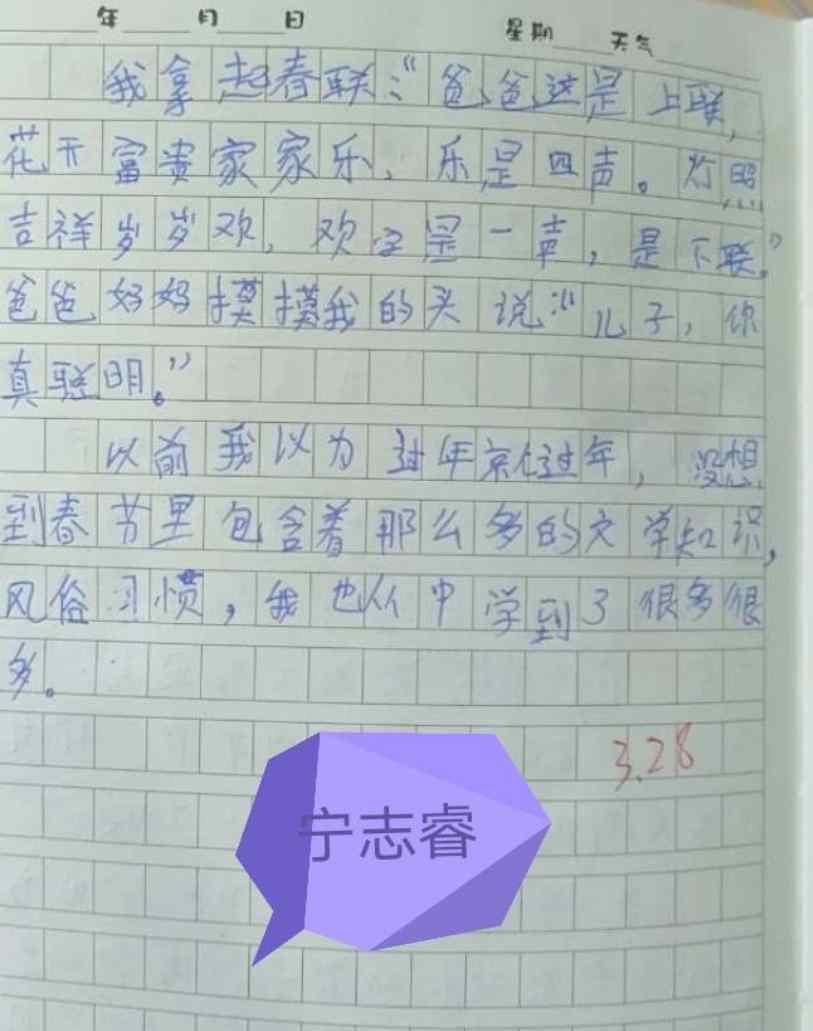 年 月 日 星期 天气
我拿起春联:“爸爸这是上联,
花开富贵家家乐、乐是四声。灯照
吉祥岁岁欢,欢字是一声,是下联。”
爸爸妈妈摸摸我的头说:“儿子,你
真聪明。”
以前我以为过年就过年,没想
到春节里包含着那么多的文学知识,
风俗习惯,我也从中学到了很多很
多。
3.28
宁志睿